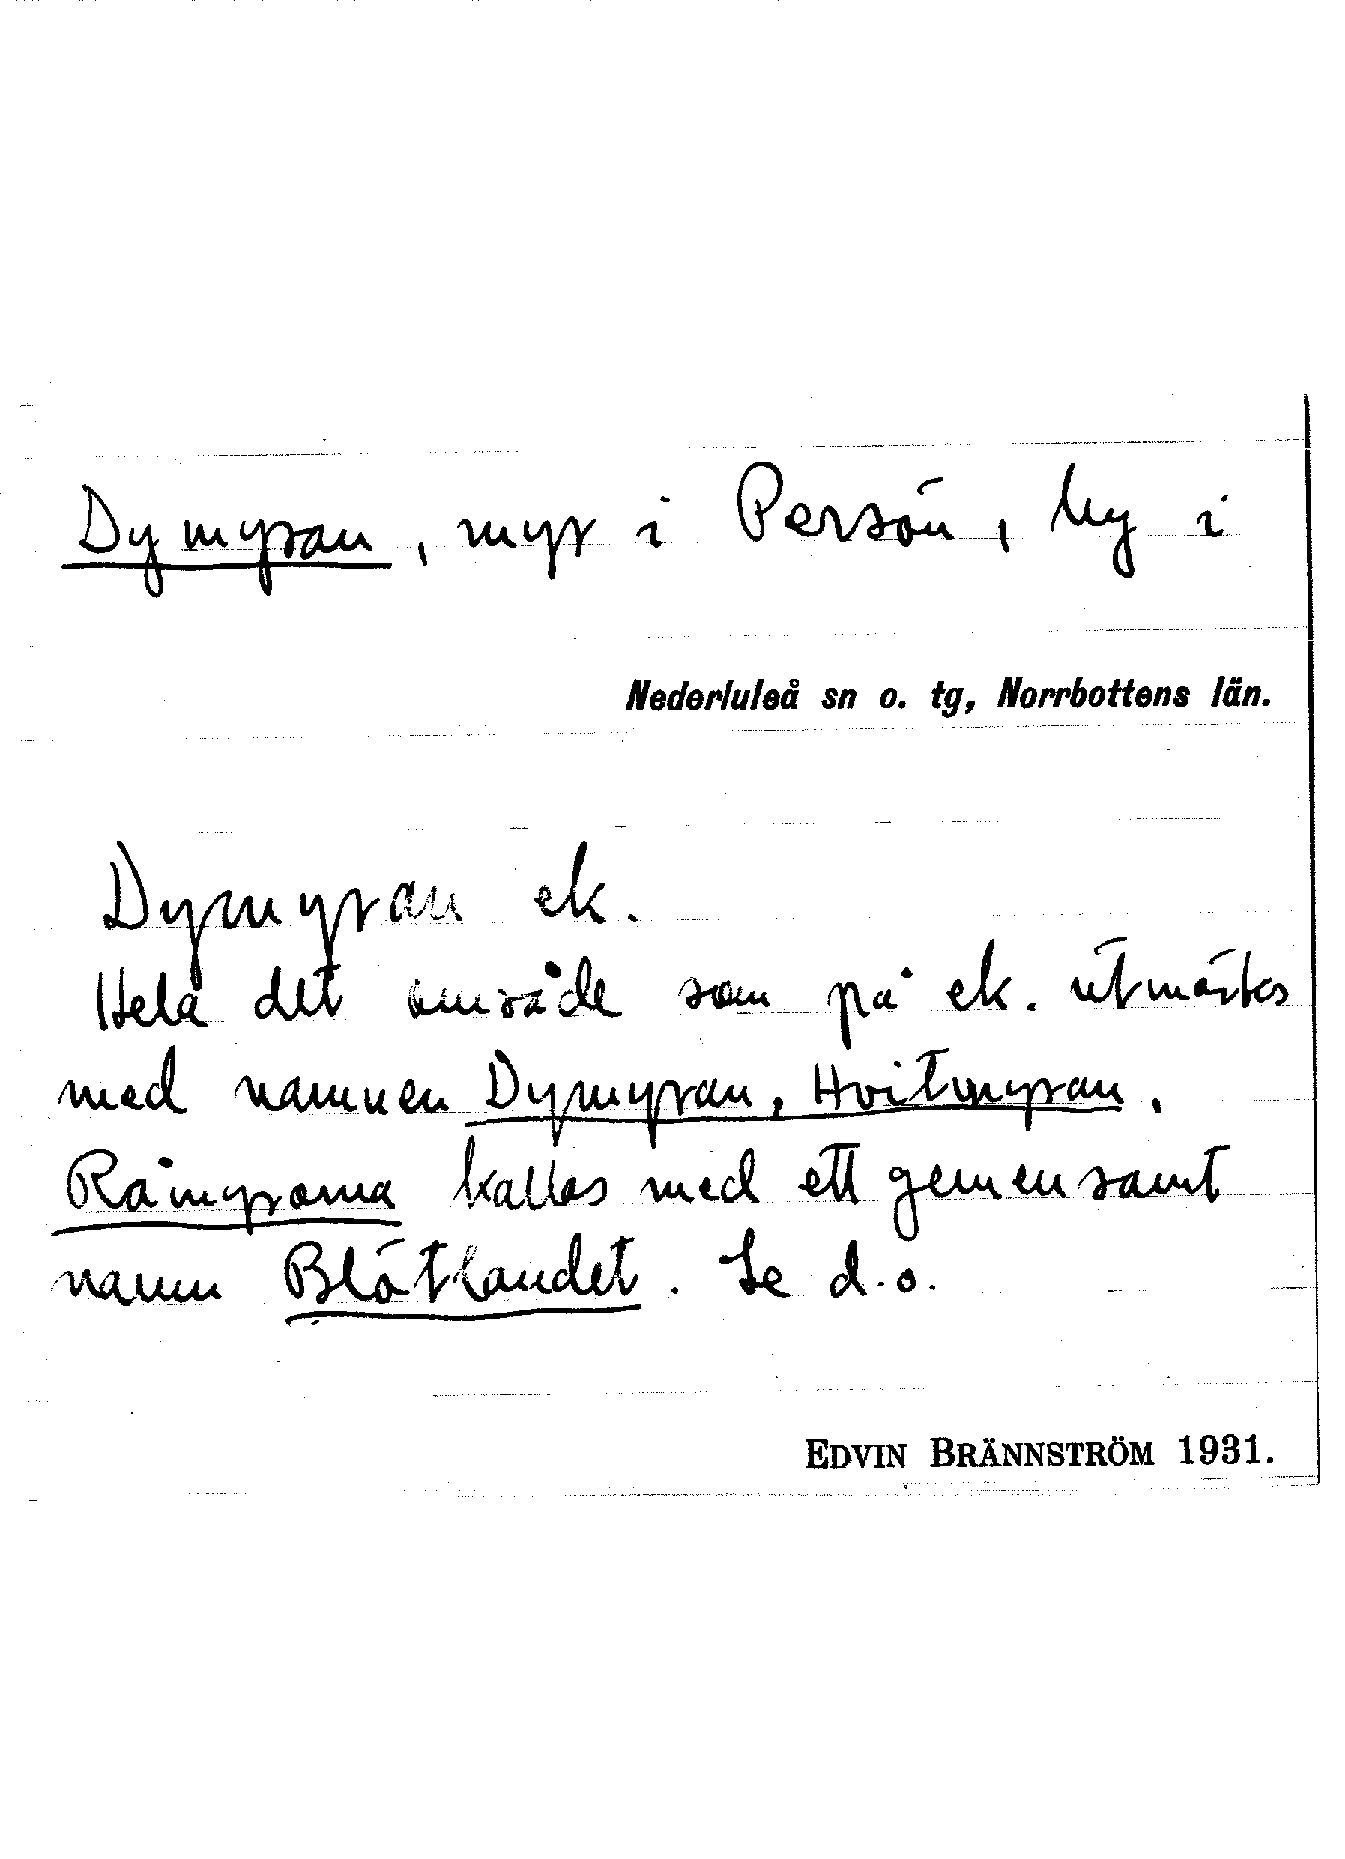 Dymyran, myr i Persön, by i
Nederluleå sn o. tg, Norrbottens län.
Dymyran ek.
Hela det område som på ek. utmärkes
med namnen Dymyran, Hvitmyran,
Råmyrorna kallas med ett gemensamt
namn Blötlandet. Se d.o.
EDVIN BRÄNNSTRÖM 1931.